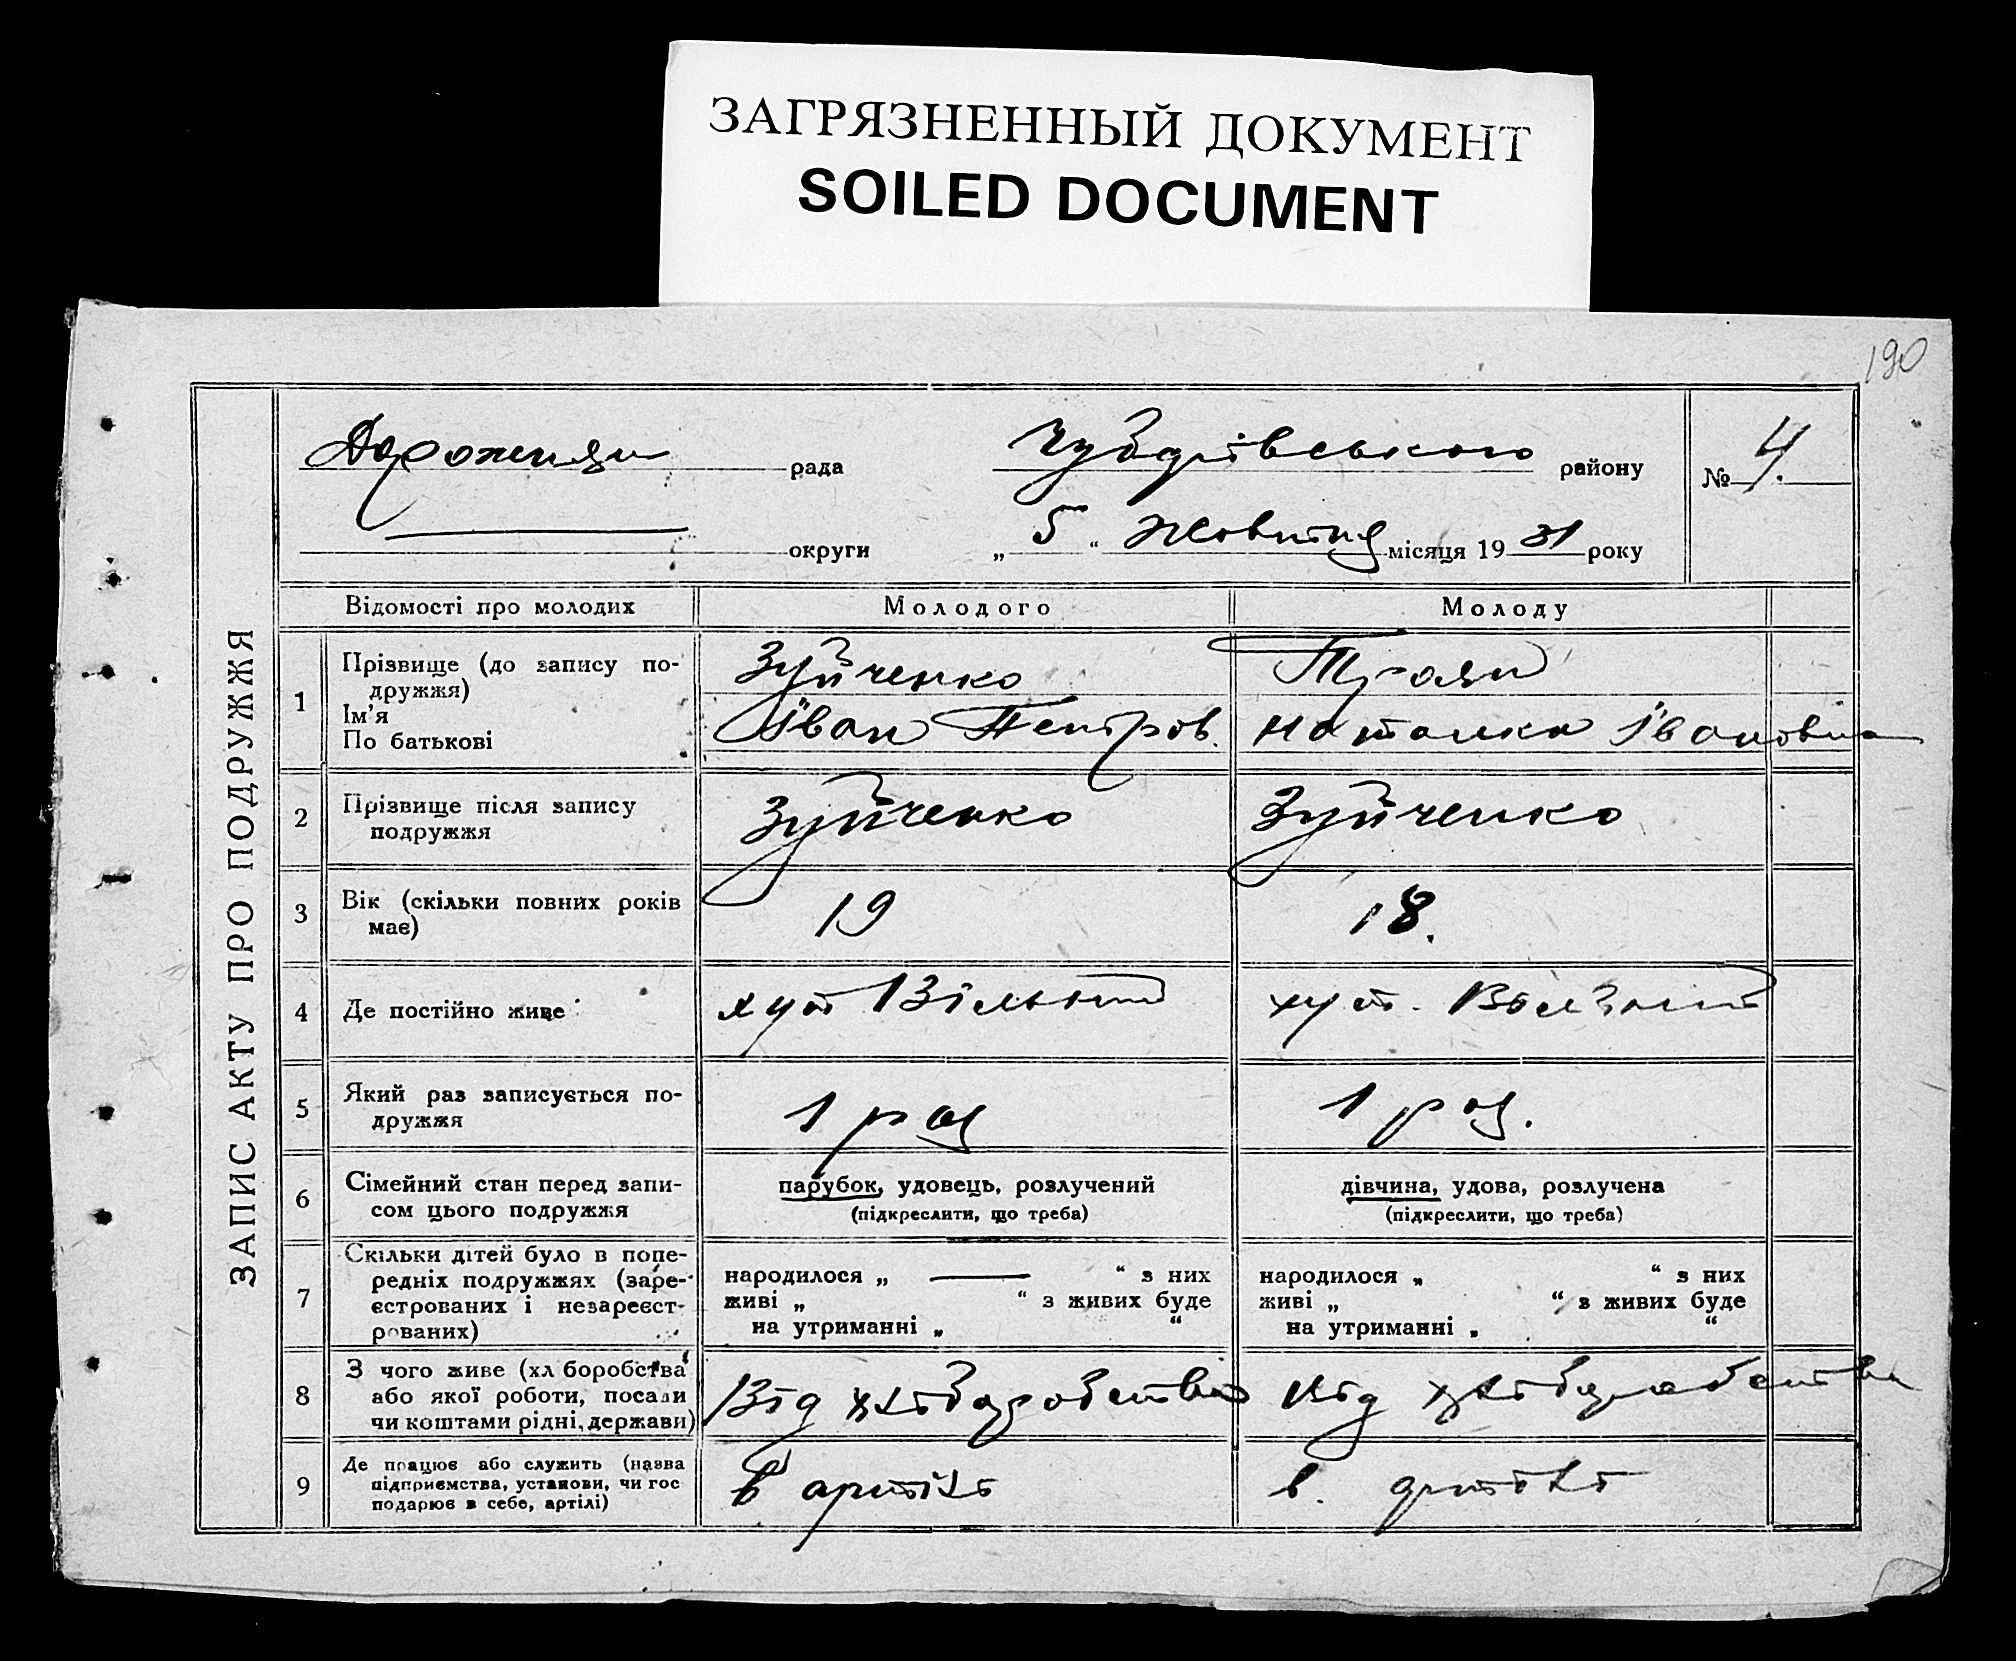 ЗАГРЯЗНЕННЫЙ ДОКУМЕНТ
SOILED DOCUMENT
190
ЗАПИС АКТУ ПРО ПОДРУЖЖЯ
рада
району
№ 4.
округи
„ 5 “ Жовтня місяця 19 31 року
Відомості про молодих
Молодого
Молоду
1
Прізвище (до запису по-
дружжя)
Ім’я
По батькові
Зуйченко
Іван Петров.
Троян
Наталка Івановна
2
Прізвище після запису
подружжя
Зуйченко
Зуйченко
3
Вік (скільки повних років
має)
19
18.
4
Де постійно живе
хут Вільний
хут.
5
Який раз записується по-
дружжя
1 раз
1 раз.
6
Сімейний стан перед запи-
сом цього подружжя
парубок, удовець, розлучений
(підкреслити, що треба)
дівчина, удова, розлучена
(підкреслити, що треба)
7
Скільки дітей було в попе-
редніх подружжях (заре-
єстрованих і незареєст-
рованих)
народилося „ — “ з них
живі „ “ з живих буде
на утриманні „ “
народилося „ “ з них
живі „ “ з живих буде
на утриманні „ “
8
З чого живе (хл боробства
або якої роботи, посади
чи коштами рідні, держави)
Від хліборобства
Від хліборобства
9
Де працює або служить (назва
підприємства, установи, чи гос
подарює в себе, артілі)
в артілі
в. артілі